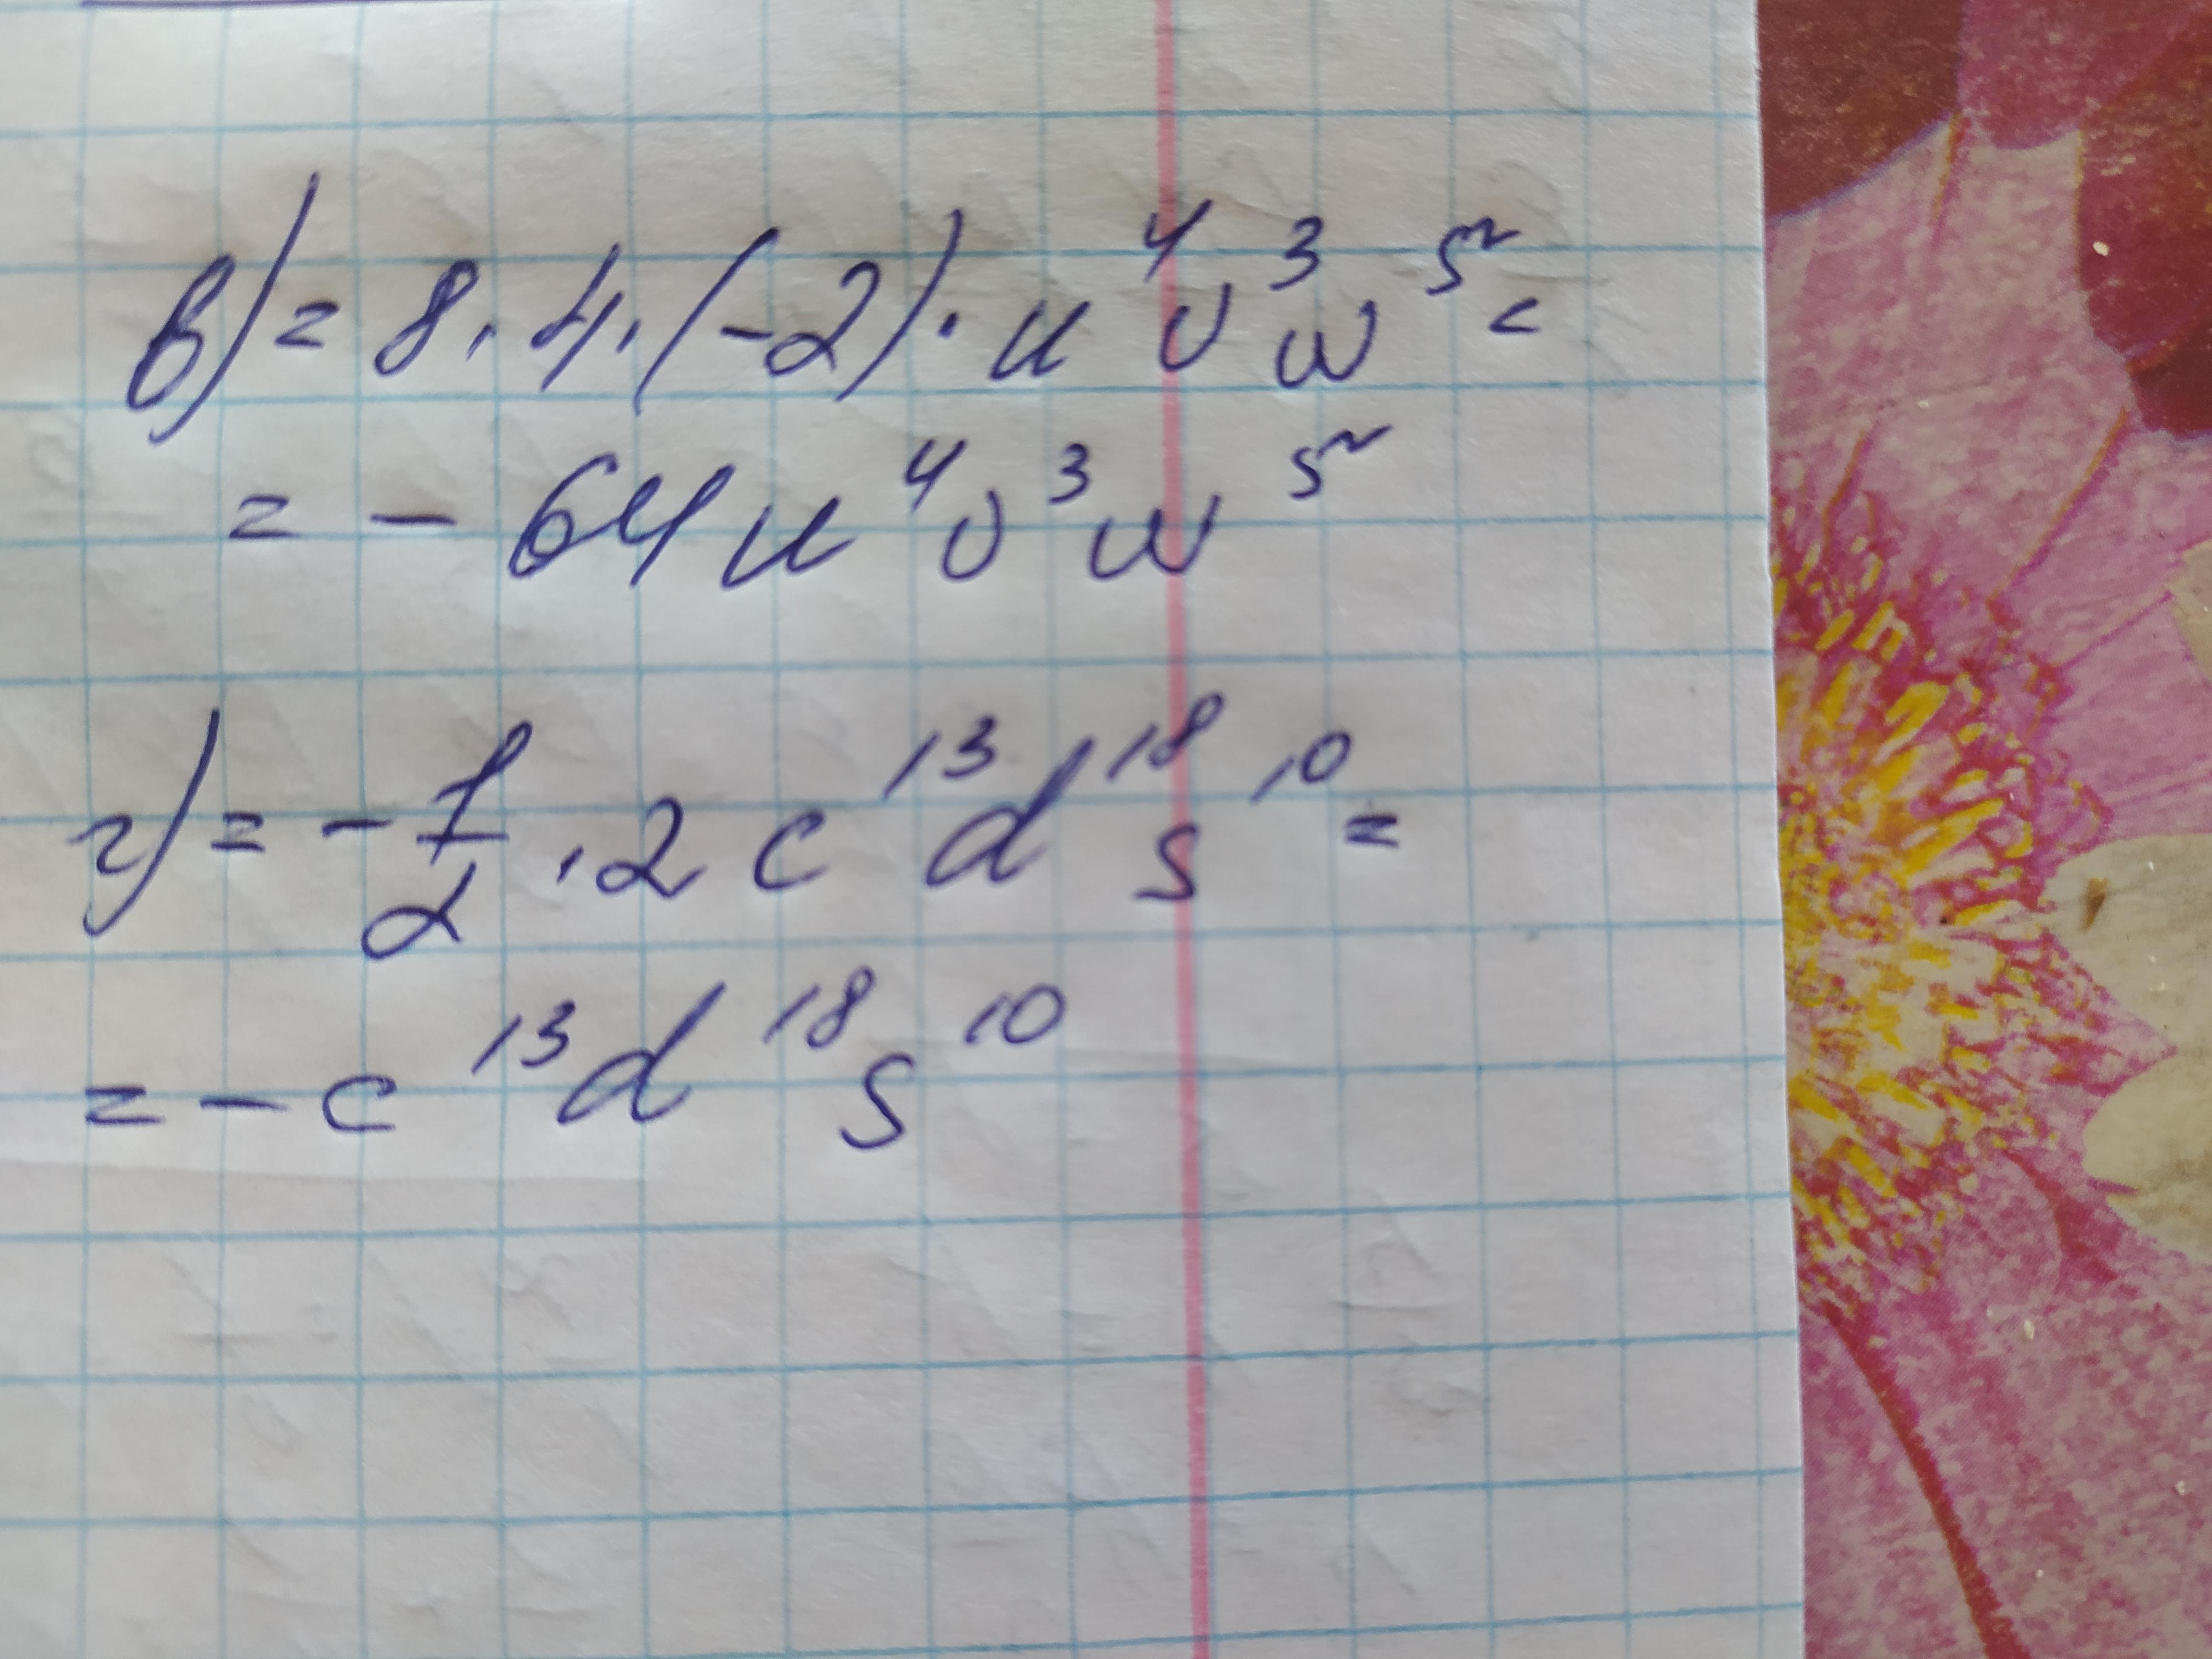 в) = 8 · 4 · (-2) · u⁴ v³ w⁵ =
= - 64 u⁴ v³ w⁵
г) = - 1/2 · 2 c¹³ d¹⁸ s¹⁰ =
= - c¹³ d¹⁸ s¹⁰